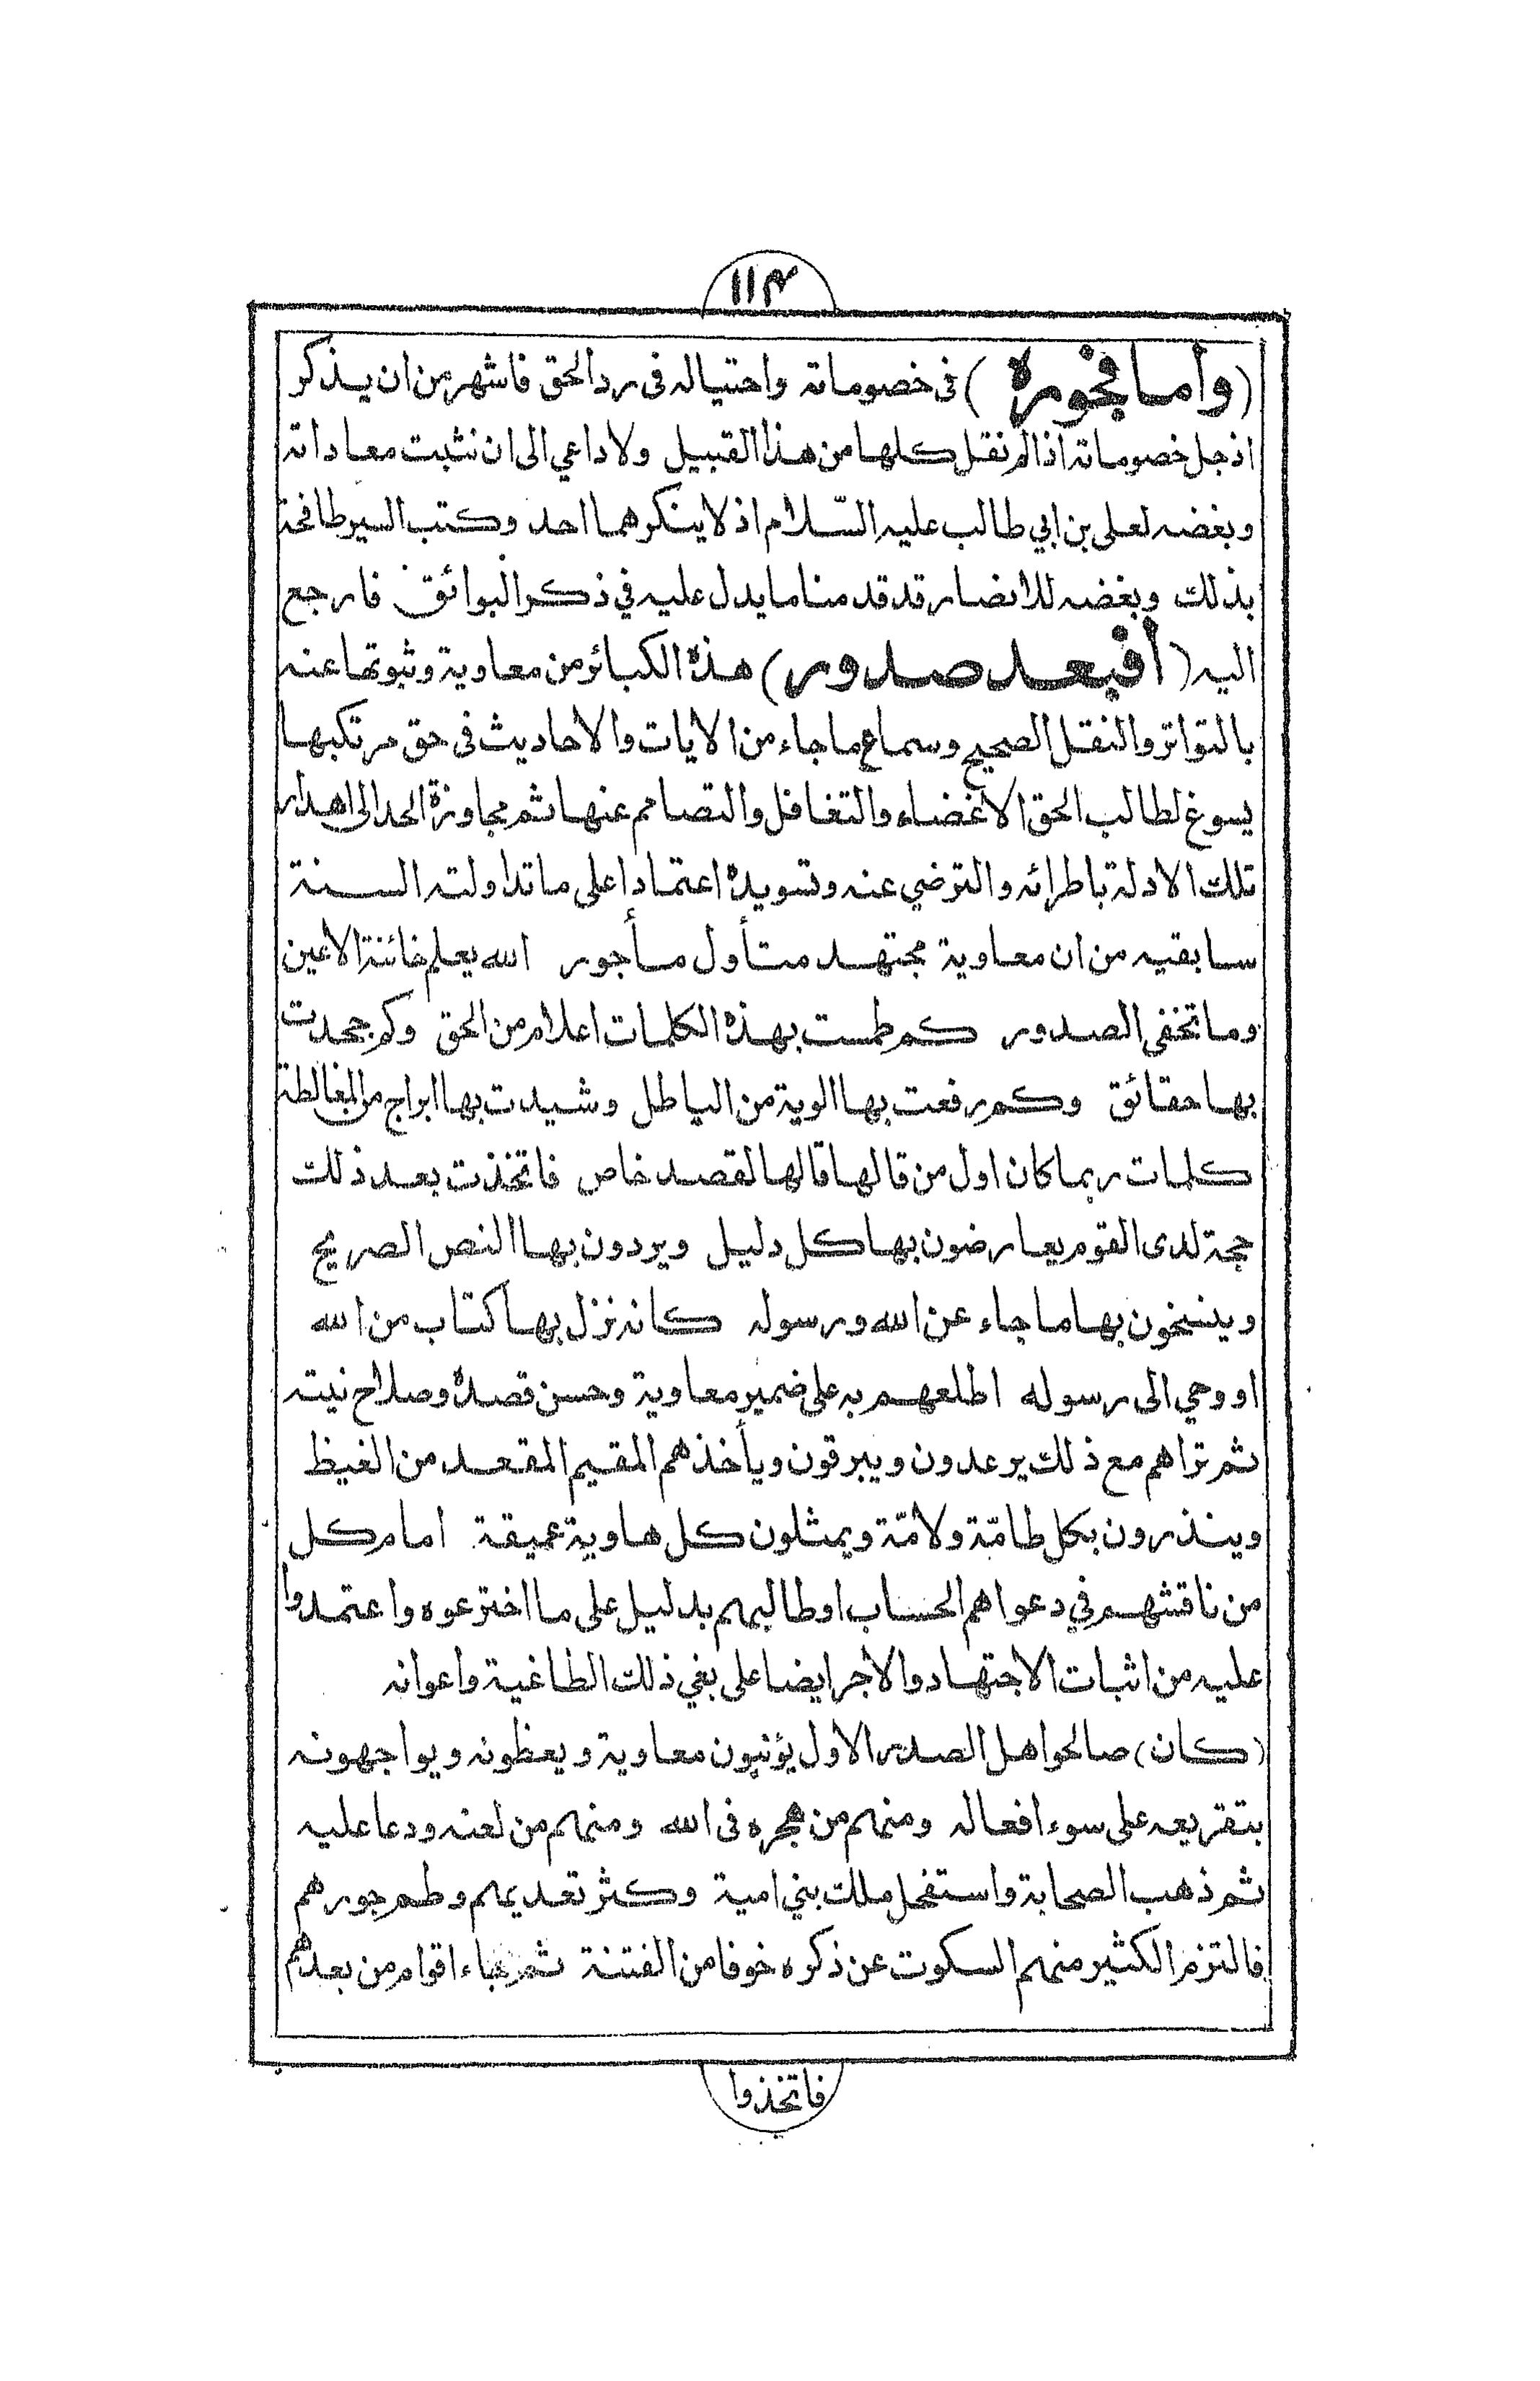 ١١٣
(وأما فجوره) فى خصوماته واحتياله فى رد الحق فاشهر من ان يذكر
اذ جل خصوماته اذا لم نقل كلها من هذا القبيل ولا داعي الى ان نثبت معاداته
وبغضه لعلى بن ابي طالب عليه السّلام اذ لا ينكرهما احد وكتب السير طافحة
بذلك وبغضه للانصار قد قدمنا ما يدل عليه في ذكر البوائق فارجع
اليه (أفبعد صدور) هذه الكبائر من معاوية وثبوتها عنه
بالتواتر والنقل الصحيح وسماع ما جاء من الايات والاحاديث فى حق مرتكبها
يسوغ لطالب الحق الاغضاء والتغافل والتصامم عنها ثم مجاوزة الحد الى اهدار
تلك الادلة باطرائه والترضي عنه وتسويده اعتمادا على ما تداولته السنة
سابقيه من ان معاوية مجتهد متأول مأجور الله يعلم خائنة الاعين
وما تخفى الصدور كم طمست بهذه الكلمات اعلام من الحق وكم جحدت
بها حقائق وكم رفعت بها الوية من الباطل وشيدت بها ابراج من المغالطة
كلمات ربما كان اول من قالها قالها لقصد خاص فاتخذت بعد ذلك
حجة لدى القوم يعارضون بها كل دليل ويردون بها النص الصريح
وينسخون بها ما جاء عن الله ورسوله كانه نزل بها كتاب من الله
او وحي الى رسوله اطلعهم به على ضمير معاوية وحسن قصده وصلاح نيته
ثم تراهم مع ذلك يرعدون ويبرقون ويأخذهم المقيم المقعد من الغيظ
وينذرون بكل طامّة ولامّة ويمثلون كل هاوية عميقة امام كل
من ناقشهم في دعواهم الحساب او طالبهم بدليل على ما اخترعوه واعتمدوا
عليه من اثبات الاجتهاد والاجر ايضا على بغي ذلك الطاغية واعوانه
(كان) صالحوا هل الصدر الاول يؤنبون معاوية ويعظونه ويواجهونه
بتقريعه على سوء افعاله ومنهم من هجره فى الله ومنهم من لعنه ودعا عليه
ثم ذهب الصحابة واستفحل ملك بني امية وكثر تعديهم وطم جورهم
فالتزم الكثير منهم السكوت عن ذكره خوفا من الفتنة ثم جاء اقوام من بعدهم
فاتخذوا